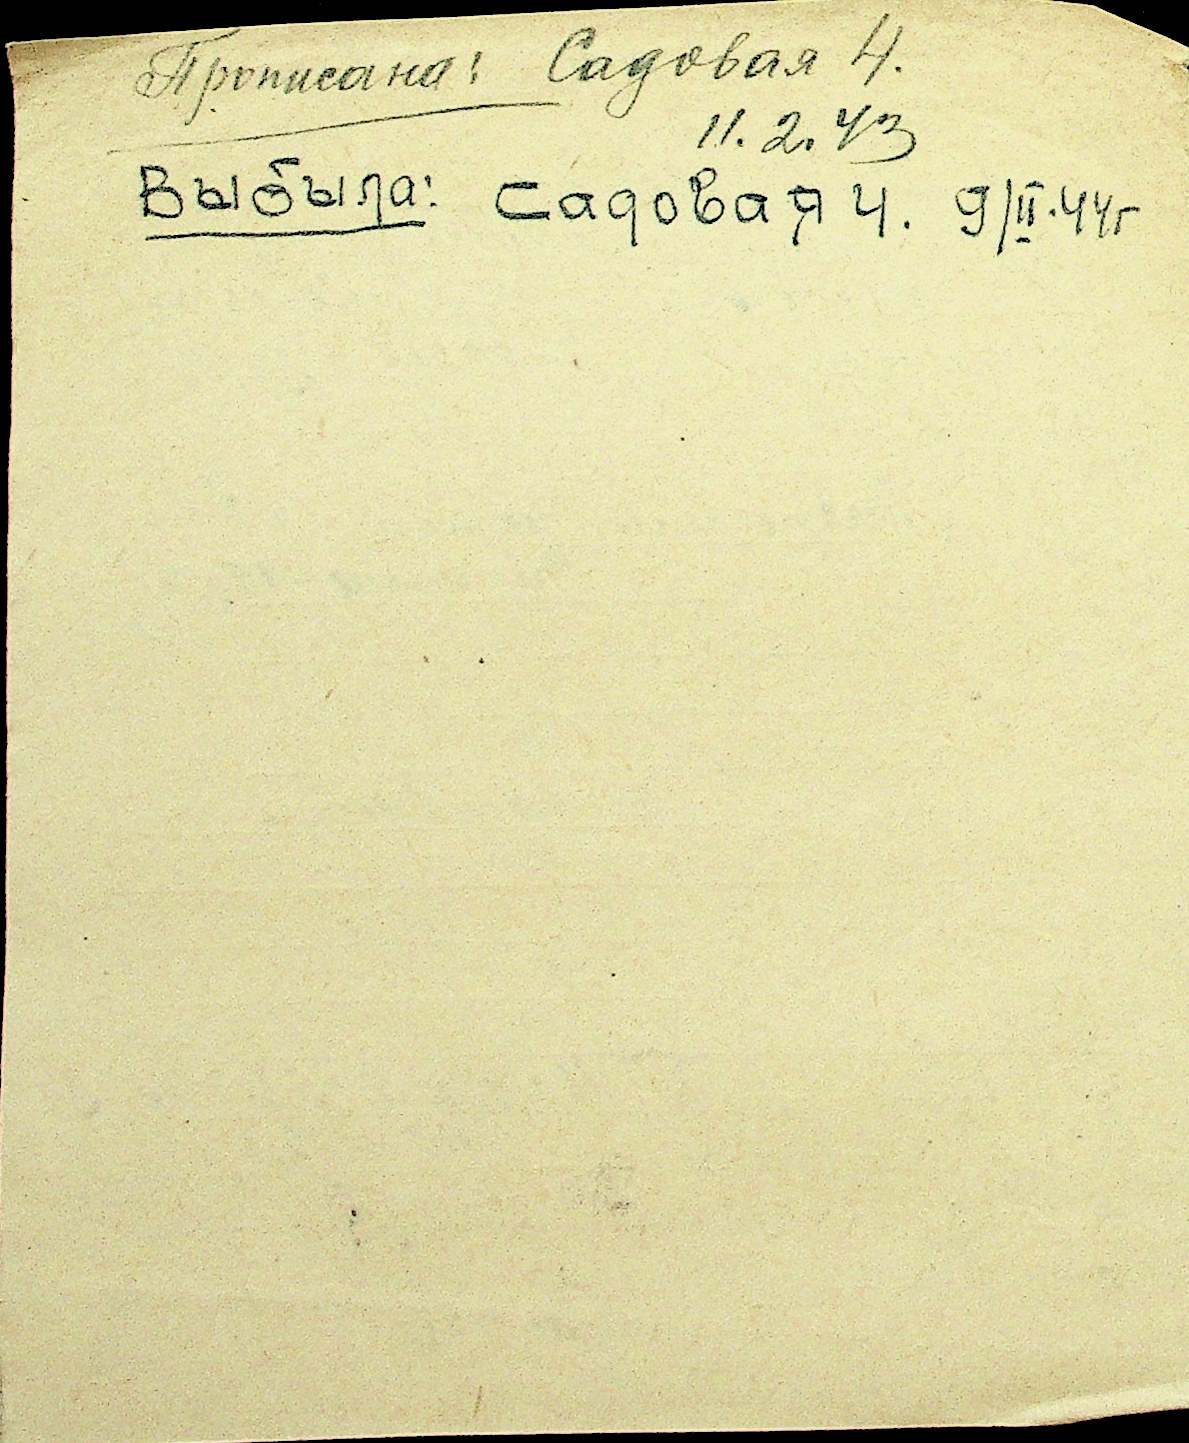 Прописана: Садовая 4.
11.2.43
Выбыла: Садовая 4. 9/II.44г